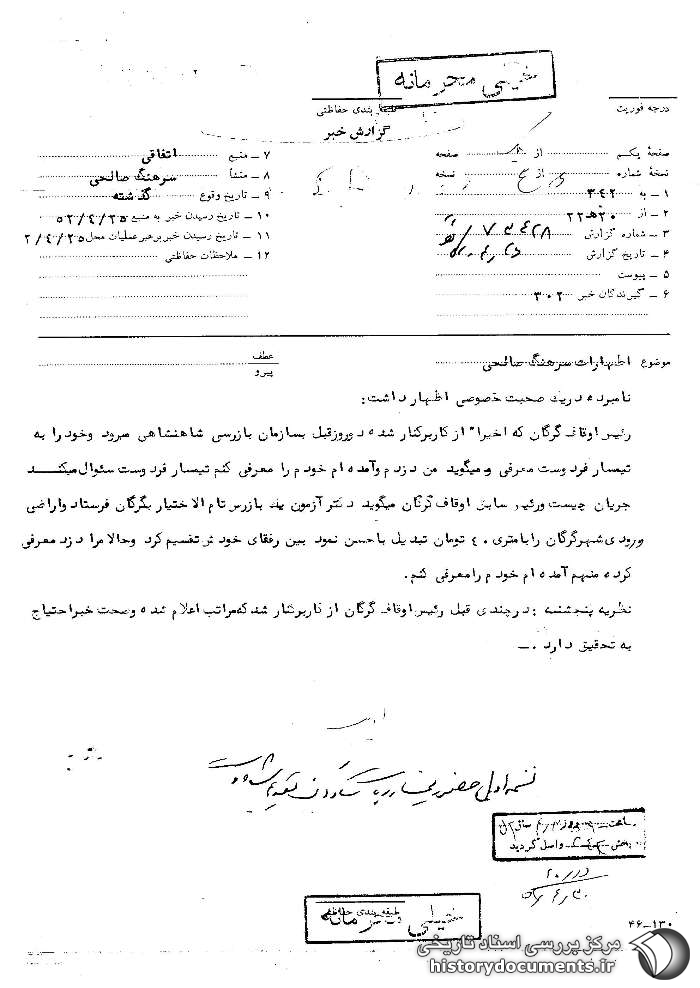 خیلی محرمانه
درجه فوریت
طبقه بندی حفاظتی
گزارش خبر
صفحهٔ یکم از صفحه
نسخهٔ شماره از نسخه
۱ – به ۳۴۲
۲ – از ۲۰ هـ ۲۲
۳ – شماره گزارش
۴ – تاریخ گزارش
۵ – پیوست
۶ – گیرندگان خبر ۳۰۲
۷ – منبع اتفاقی
۸ – منشأ سرهنگ صالحی
۹ – تاریخ وقوع گذشته
۱۰ – تاریخ رسیدن خبر به منبع ۵۲/۴/۲۵
۱۱ – تاریخ رسیدن خبر برهبر عملیات محل ۲/۴/۲۵
۱۲ – ملاحظات حفاظتی
موضوع اظهارات سرهنگ صالحی
عطف
پیرو
نامبرده در یک صحبت خصوصی اظهار داشت:
رئیس اوقاف گرگان که اخیرا" از کار برکنار شده دو روز قبل بسازمان بازرسی شاهنشاهی میرود و خود را به
تیمسار فردوست معرفی و میگوید من دزدم و آمده ام خودم را معرفی کنم تیمسار فردوست سئوال میکنــد
جریان چیست و رئیس سابق اوقاف گرگان میگوید دکتر آزمون یک بازرس تام الاختیار بگرگان فرستاد و اراضی
ورودی شهر گرگان را بامتری ۴۰ تومان تبدیل باحسن نمود بین رفقای خودش تقسیم کرد و حالا مرا دزد معرفی
کرده منهم آمده ام خودم را معرفی کنم.
نظریه پنجشنبه : در چندی قبل رئیس اوقاف گرگان از کار برکنار شد که مراتب اعلام شده و صحت خبر احتیاج
به تحقیق دارد .ــ
واصل گردید
طبقه بندی حفاظتی
خیلی محرمانه
۴۶-۱۳۰
مرکز بررسی اسناد تاریخی
historydocuments.ir